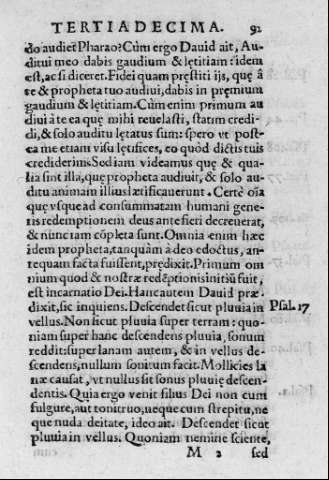 TERTIA DECIMA. 92
do audiet Pharao? Cùm ergo Dauid ait, Au-
ditui meo dabis gaudium & lętitiam: idem
est, ac si diceret. Fidei quam pręstiti ijs, quę â
te & propheta tuo audiui, dabis in pręmium
gaudium & lętitiam. Cùm enim primum au
diui à te ea quę mihi reuelasti, statim credi-
di, & solo auditu lętatus sum: spero vt post-
ea me etiam visu lętifices, eo quòd dictis tuis
crediderim. Sed iam videamus quę & qua-
lia sint illa, que propheta audiuit, & solo au-
ditu animam illius lætificauerunt. Certè oīa
quę vsque ad consummatam humani gene-
ris redemptionem deus ante fieri decreuerat,
& nunc iam cōpleta sunt. Omnia enim hæc
idem propheta, tanquàm à deo edoctus, an-
tequam facta fuissent, prędixit. Primum om
nium quod & nostræ redēptionis initiū fuit,
est incarnatio Dei. Hanc autem Dauid præ-
dixit, sic inquiens. Descendet sicut pluuia in
Psal. 17
vellus. Non sicut pluuia super terram: quo-
niam super hanc descendens pluuia, sonum
reddit: super lanam autem, & in vellus de-
scendens, nullum sonitum facit. Mollicies la
næ causat, vt nullus sit sonus pluuię descen-
dentis. Quia ergo venit filius Dei non cum
fulgure, aut tonitruo, neque cum strepitu, ne
que nuda deitate, ideo ait. Descendet sicut
pluuia in vellus. Quoniam nemine sciente,
M 2 sed